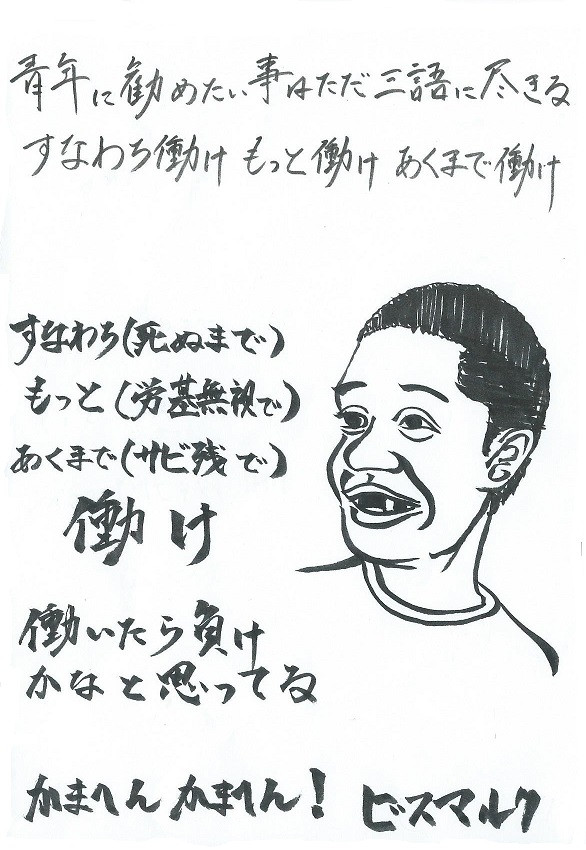 青年に勧めたい事はただ三語に尽きる
すなわち働け もっと働け あくまで働け
すなわち(死ぬまで)
もっと(労基無視で)
あくまで(サビ残で)
働け
働いたら負け
かなと思ってる
かまへん かまへん! ビスマルク